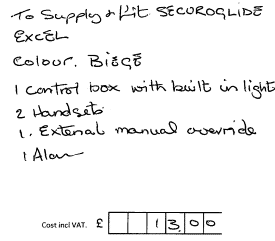 To Supply & Fit SECUROGLIDE
EXCEL
Colour. BIEGE
1 control box with built in light
2 Handsets
1. External manual override
1 Alarm
Cost incl VAT. £ 13.00